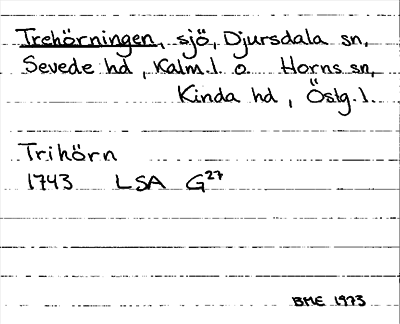 Trehörningen, sjö, Djursdala sn,
Sevede hd, Kalm.l. o. Horns sn,
Kinda hd, Östg.l.
Trihörn
1743 LSA G27
BME 1973